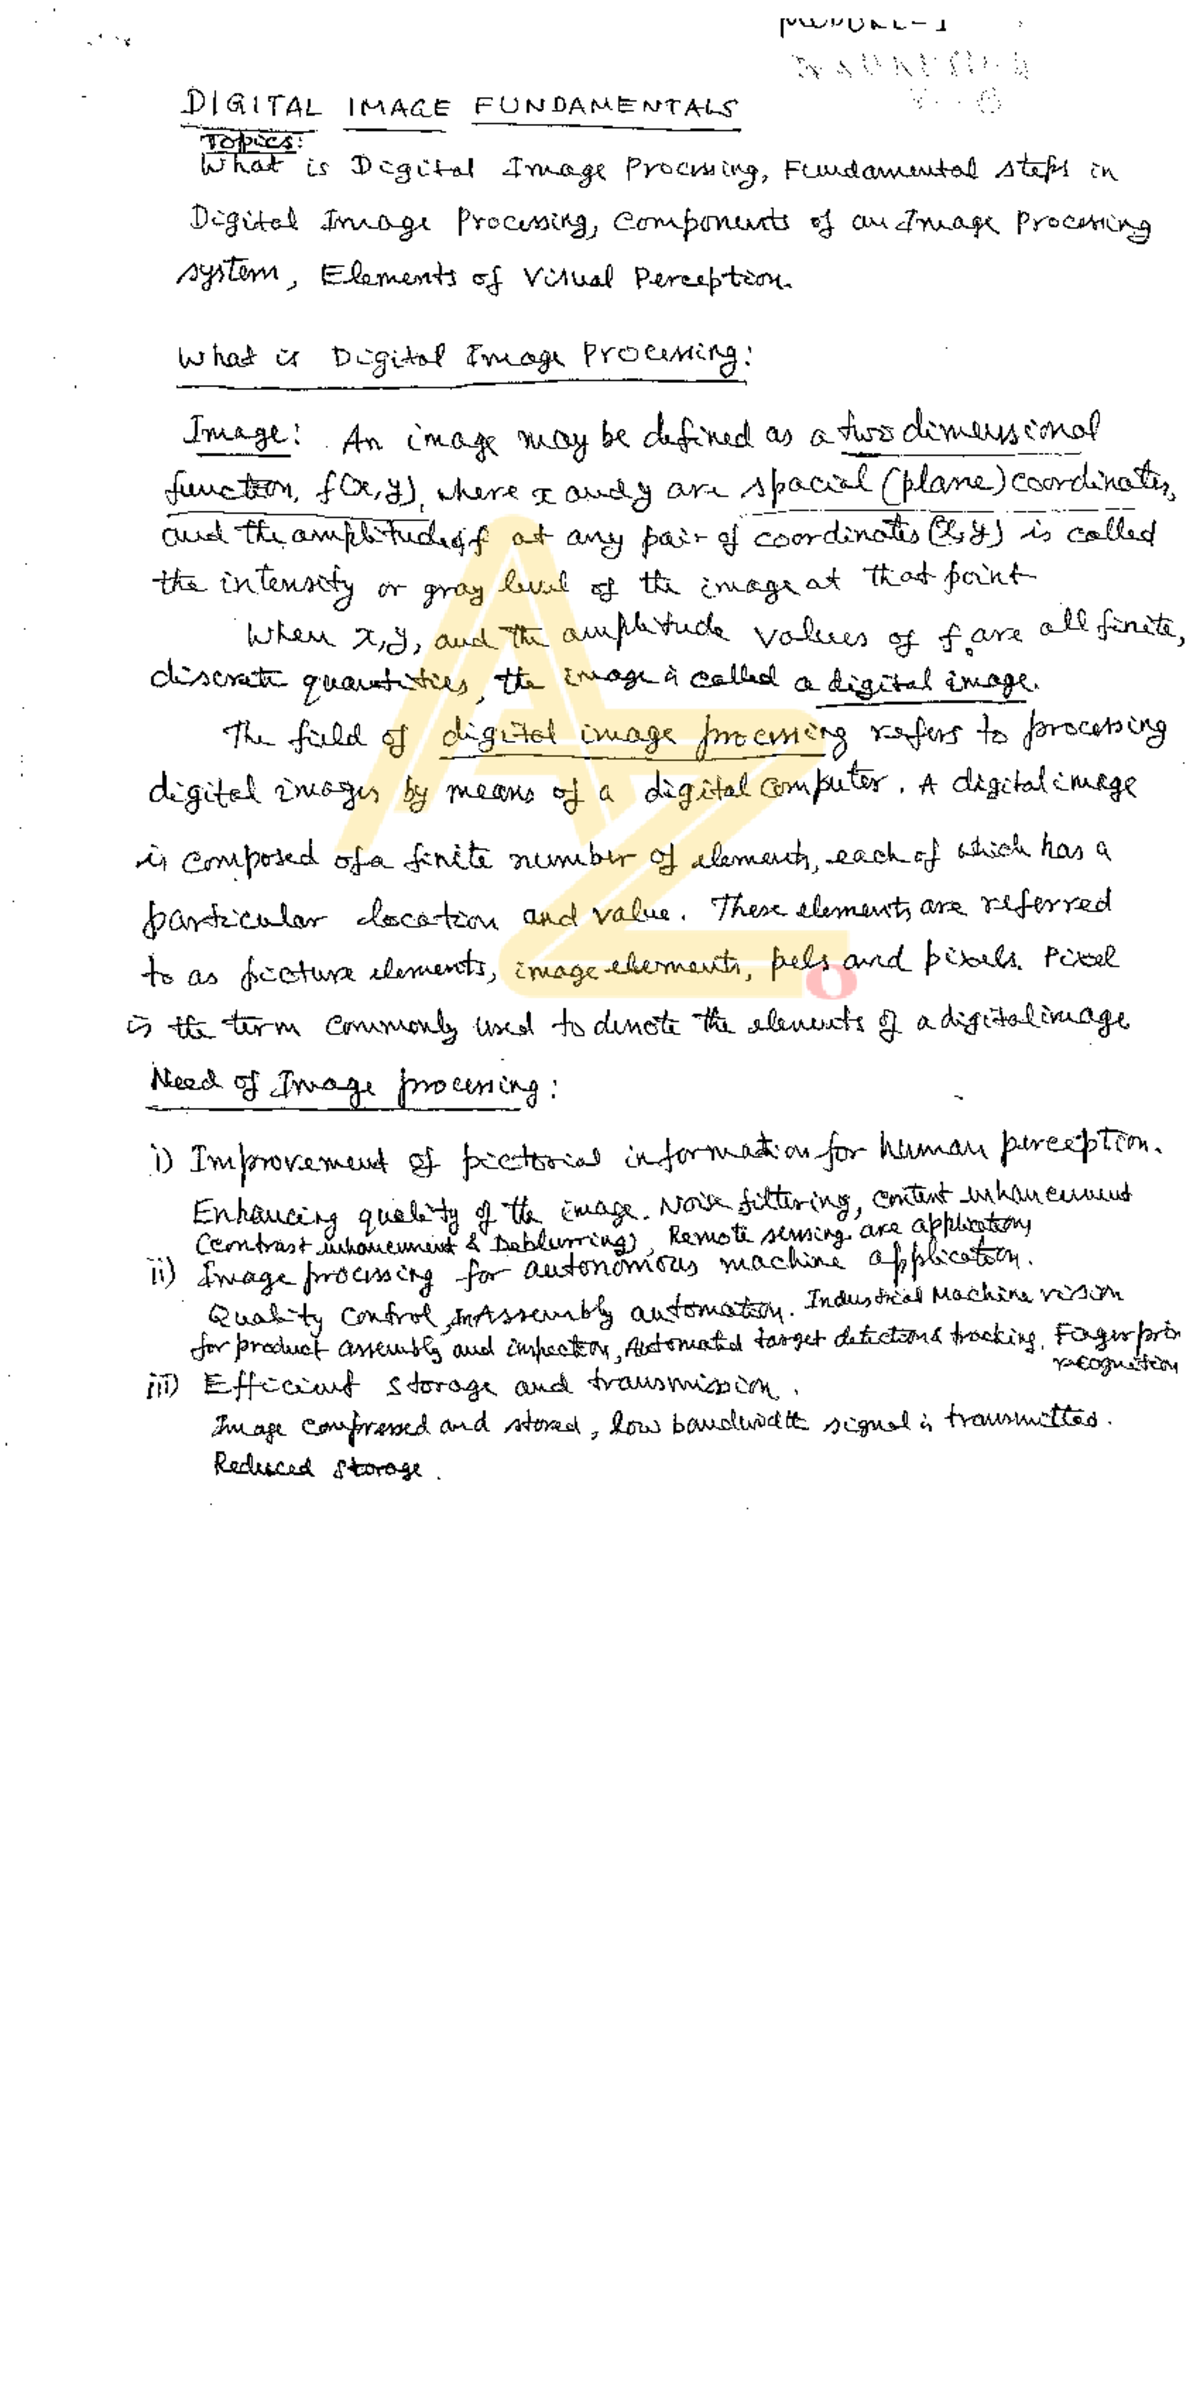 MODULE-1
DIGITAL IMAGE FUNDAMENTALS
Topics:
What is Digital Image Processing, Fundamental steps in
Digital Image Processing, Components of an Image Processing
system, Elements of Visual Perception.
What is Digital Image Processing:
Image: An image may be defined as a two dimensional
function, f(x,y), where x and y are spacial (plane) coordinates,
and the amplitude of f at any pair of coordinates (x,y) is called
the intensity or gray level of the image at that point
When x,y, and the amplitude values of f are all finite,
discrete quantities, the image is called a digital image.
The field of digital image processing refers to processing
digital images by means of a digital computer. A digital image
is composed of a finite number of elements, each of which has a
particular location and value. These elements are referred
to as picture elements, image elements, pels and pixels. Pixel
is the term commonly used to denote the elements of a digital image
Need of Image processing:
i) Improvement of pictorial information for human perception.
Enhancing quality of the image. Noise filtering, content enhancement
(contrast enhancement & Deblurring), Remote sensing are applications
ii) Image processing for autonomous machine application.
Quality control, in Assembly automation. Industrial Machine vision
for product assembly and inspection, Automated target detection & tracking. Fingerprin
recognition
iii) Efficient storage and transmission.
Image compressed and stored, low bandwidth signal is transmitted.
Reduced storage.